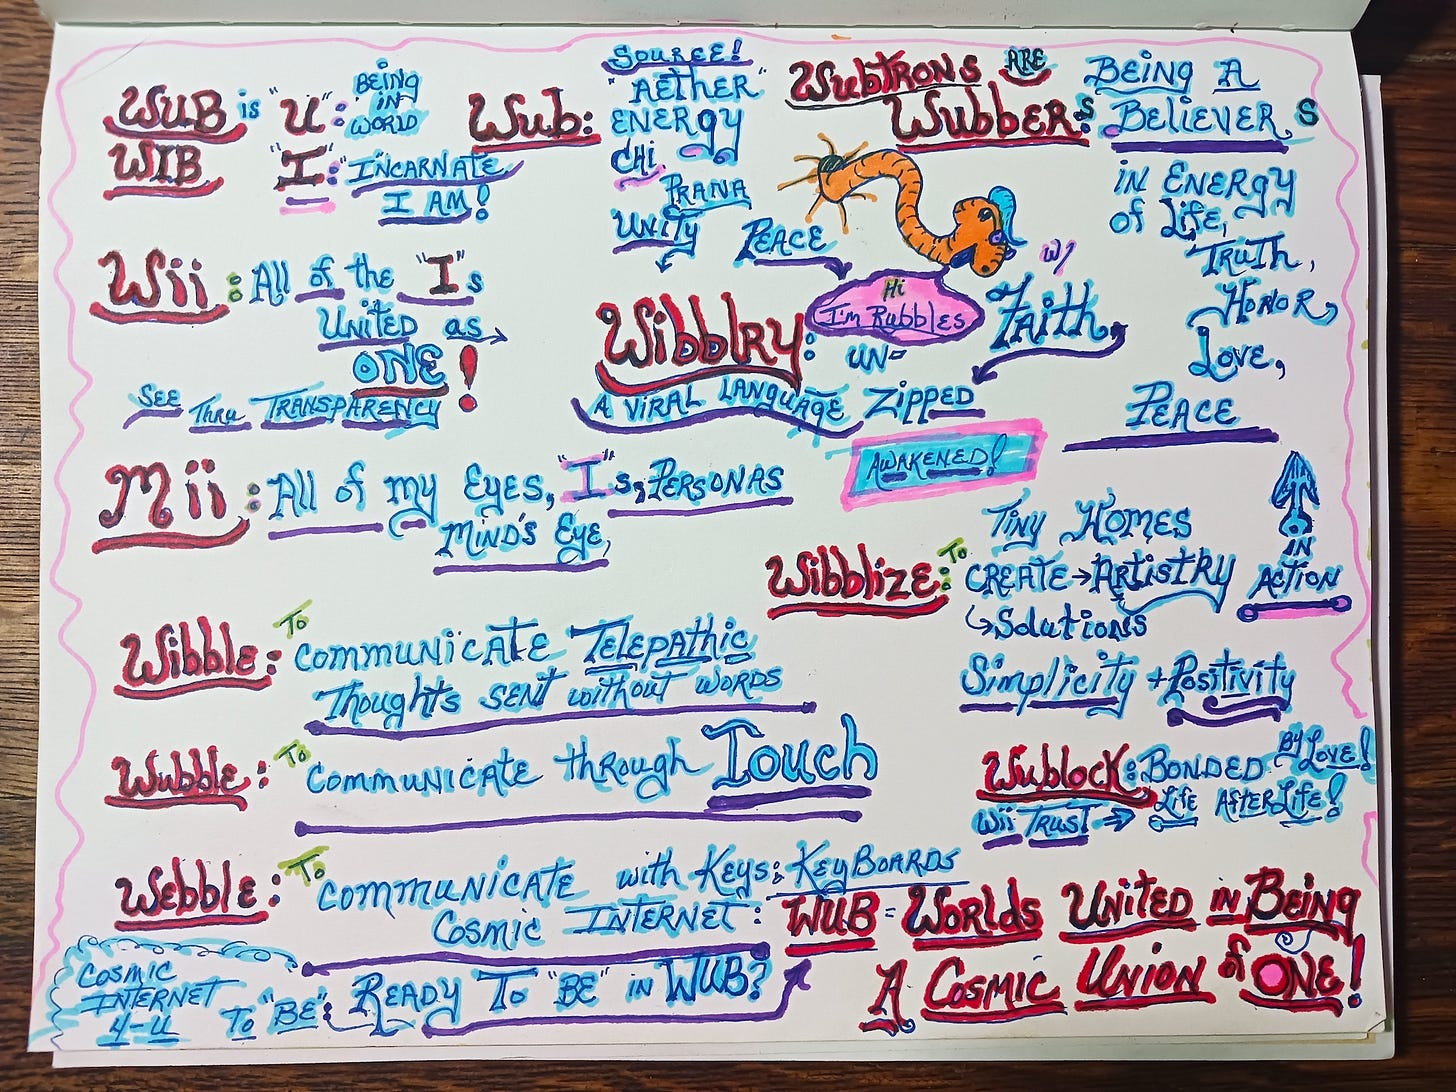 WUB is "U": BEING IN WORLD
WIB "I": INCARNATE
I AM!
Wub: SOURCE!
"AETHER"
ENERGY
CHI
PRANA
UNITY
PEACE
WUBTRONS ARE
WUBBERS: BEING A
BELIEVERS
IN ENERGY
OF LIFE,
TRUTH,
HONOR,
LOVE,
PEACE
Hi
I'm Rubbles
Wii: All of the "I"s
UNITED as
ONE!
SEE THRU TRANSPARENCY
Wibblry: UN-
ZIPPED
w/
FAITH
A VIRAL LANGUAGE
AWAKENED!
Mii: All of my Eyes, "I"s, PERSONAS
MIND'S Eye,
Wibblize: To
Tiny Homes
CREATE → ARTISTRY
↳ Solutions
IN
ACTION
Simplicity + Positivity
Wibble: To communicate Telepathic
Thoughts sent without words
Wubble: To communicate through Touch
Wublock: BONDED By LOVE!
Wii TRUST → Life AFTER Life!
Webble: To communicate with Keys; KeyBOARDS
Cosmic INTERNET:
COSMIC
INTERNET
4-U
To "BE": READY To "BE" in WUB?
WUB = Worlds United in Being
A Cosmic Union of ONE!